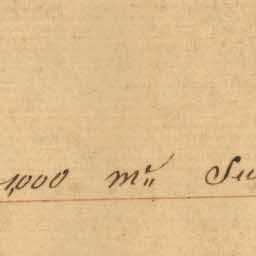 1,000 Mr. Su